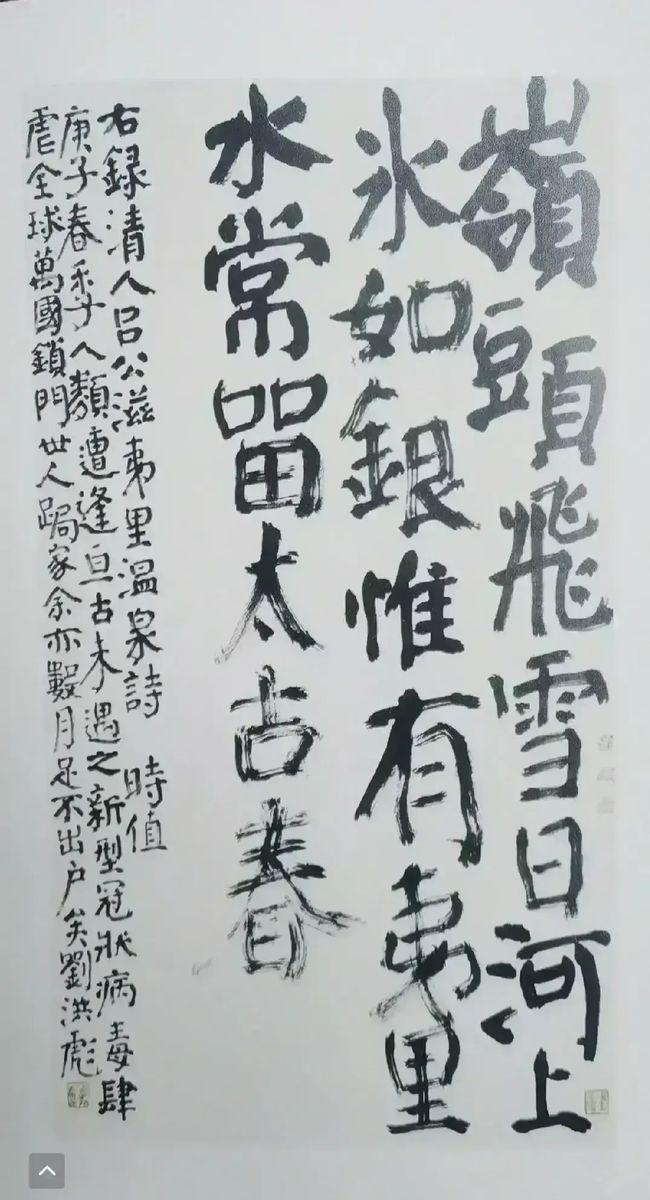 嶺頭飛雪日河上
氷如銀惟有夷里
水常留太古春
右録清人吕公滋夷里温泉詩 時值
庚子春季人類遭逢亘古未遇之新型冠狀病毒肆
虐全球萬國鎖門世人跼家余亦數月足不出户矣劉洪彪